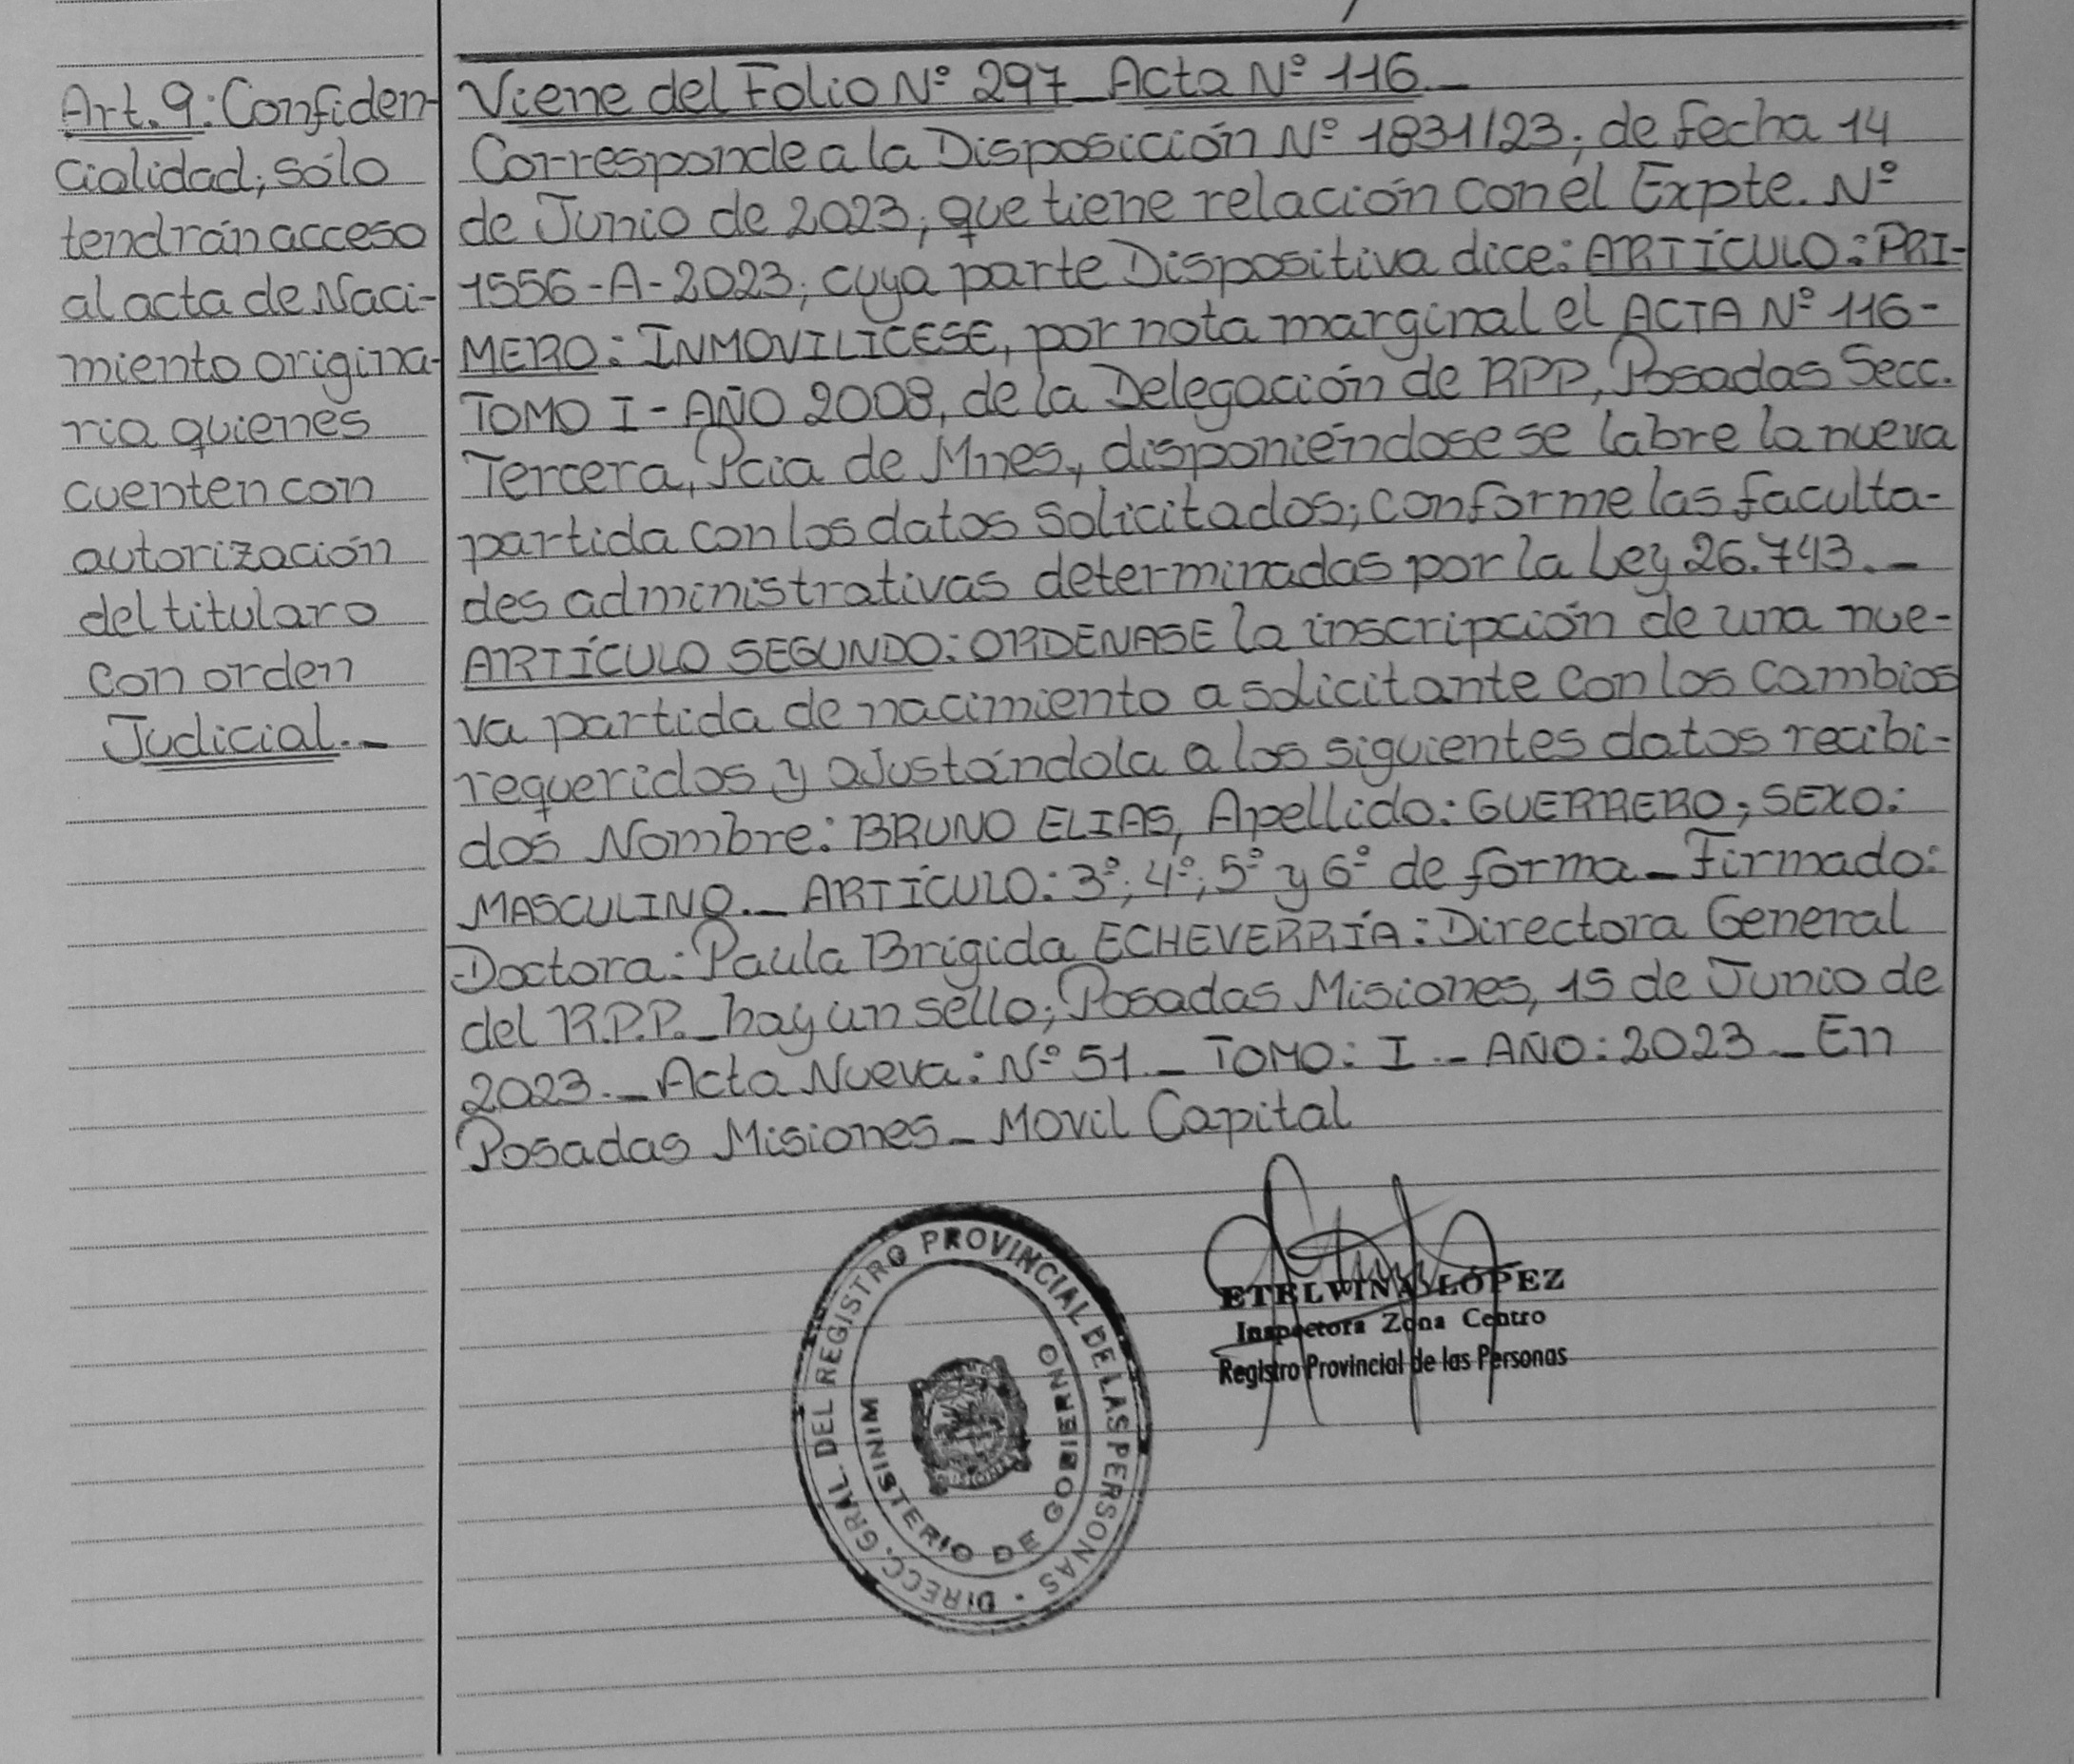 Art. 9: Confiden-
cialidad; sólo
tendrán acceso
al acta de Naci-
miento origina-
ria quienes
cuenten con
autorización
del titular o
con orden
Judicial._
Viene del Folio Nº 297_Acta Nº 116._
Corresponde a la Disposición Nº 1831/23; de fecha 14
de Junio de 2023; que tiene relación con el Expte. Nº
1556-A-2023; cuya parte Dispositiva dice: ARTÍCULO: PRI-
MERO: INMOVILICESE, por nota marginal el ACTA Nº 116-
TOMO I - AÑO 2008, de la Delegación de RPP, Posadas Secc.
Tercera, Pcia de Mnes., disponiéndose se labre la nueva
partida con los datos solicitados; conforme las faculta-
des administrativas determinadas por la Ley 26.743._
ARTÍCULO SEGUNDO: ORDENASE la inscripción de una nue-
va partida de nacimiento a solicitante con los cambios
requeridos y ajustándola a los siguientes datos recibi-
dos Nombre: BRUNO ELIAS, Apellido: GUERRERO; SEXO:
MASCULINO._ ARTÍCULO: 3º; 4º; 5º y 6º de forma_ Firmado:
Doctora: Paula Brígida ECHEVERRÍA: Directora General
del R.P.P._ hay un sello; Posadas Misiones, 15 de Junio de
2023._ Acta Nueva: Nº 51._ TOMO: I._ AÑO: 2023_ En
Posadas Misiones_ Movil Capital
DIRECC. GRAL. DEL REGISTRO PROVINCIAL DE LAS PERSONAS ·
MINISTERIO DE GOBIERNO
MISIONES
ETELWINA LOPEZ
Inspectora Zona Centro
Registro Provincial de las Personas